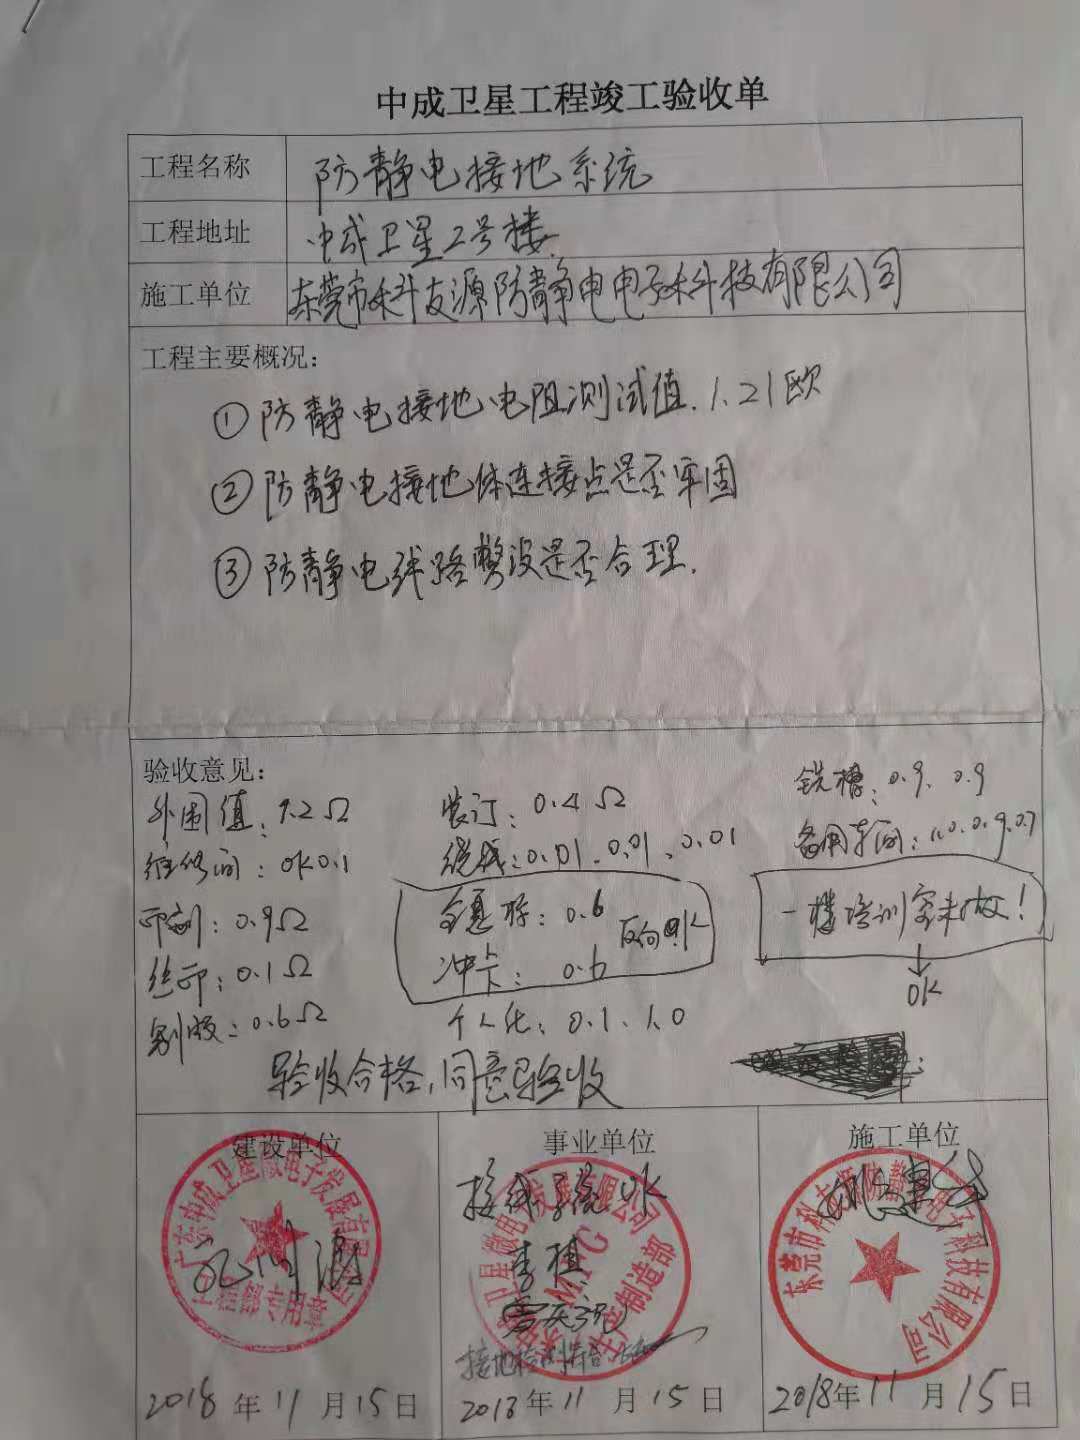 中成卫星工程竣工验收单
工程名称 防静电接地系统
工程地址 中成卫星2号楼
施工单位 东莞市科友源防静电电子科技有限公司
工程主要概况:
①防静电接地电阻测试值.1.21欧
②防静电接地体连接点是否牢固
③防静电线路整设是否合理.
验收意见:
外围值:1.2Ω 装订:0.4Ω 铣槽:0.9、0.9
维修间:OK0.1 绕线:0.01、0.01、0.01 备用车间:1.0、0.9、0.7
印刷:0.9Ω 0.6 反向OK 一楼培训室未做!
丝印:0.1Ω 冲卡:0.6 OK
制版:0.6Ω 个人化:0.1、1.0
验收合格,同意验收
建设单位 事业单位 施工单位
接线系统OK
李植
接地检测
2018年11月15日 2018年11月15日 2018年11月15日
广东中成卫星微电子发展有限公司
工程部专用章
卫星微电子发展有限公司
MFG
生产制造部
东莞市科友源防静电科技有限公司